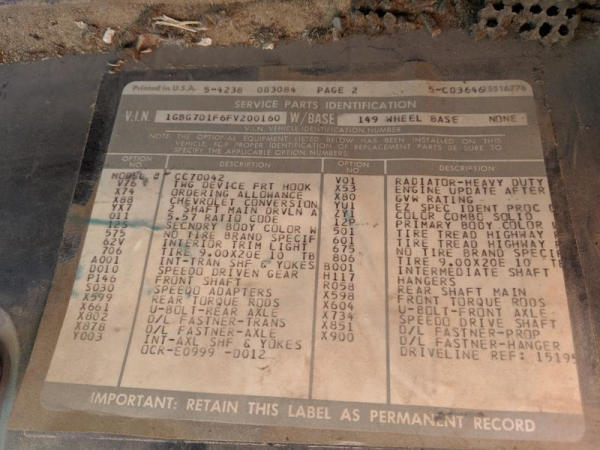 Printed in U.S.A. 5-4238 083084 PAGE 2 5-C03646
SERVICE PARTS IDENTIFICATION
V.I.N. 1GBG7D1F6FV200160 W/BASE 149 WHEEL BASE NONE
V.I.N. VEHICLE IDENTIFICATION NUMBER
NOTE: THE OPTIONAL EQUIPMENT LISTED BELOW HAS BEEN INSTALLED ON THIS
VEHICLE. FOR PROPER IDENTIFICATION OF REPLACEMENT PARTS BE SURE TO
SPECIFY THE APPLICABLE OPTION NUMBERS.
OPTION NO. DESCRIPTION OPTION NO. DESCRIPTION
MODEL # CC70042
V76 TWG DEVICE FRT HOOK
X74 ORDERING ALLOWANCE
X88 CHEVROLET CONVERSION
YX7 3 SHAFT MAIN DRVLN A
011 5.57 RATIO CODE
12S SECNDRY BODY COLOR W
575 NO TIRE BRAND SPECIF
62V INTERIOR TRIM LIGHT
706 TIRE 9.00X20E 10 TB
A001 INT-TRAN SHF & YOKES
D010 SPEEDO DRIVEN GEAR
P146 FRONT SHAFT
S030 SPEEDO ADAPTERS
X599 REAR TORQUE RODS
X661 U-BOLT-REAR AXLE
X802 D/L FASTNER-TRANS
X878 D/L FASTNER-AXLE
Y003 INT-AXL SHF & YOKES
OCR-E0999 -D012
V01 RADIATOR-HEAVY DUTY
X53 ENGINE UPDATE AFTER
X80 GVW RATING
YU1 EZ SPEC IDENT PROC
ZY1 COLOR COMBO SOLID
12P PRIMARY BODY COLOR W
501 TIRE TREAD HIGHWAY
601 TIRE TREAD HIGHWAY
675 NO TIRE BRAND SPECIF
806 TIRE 9.00X20E 10 TB
B001 INTERMEDIATE SHAFT
H117 HANGERS
R058 REAR SHAFT MAIN
X598 FRONT TORQUE RODS
X604 U-BOLT-FRONT AXLE
X734 SPEEDO DRIVE SHAFT
X851 D/L FASTNER-PROP
X900 D/L FASTNER-HANGER
DRIVELINE REF: 1519
IMPORTANT: RETAIN THIS LABEL AS PERMANENT RECORD